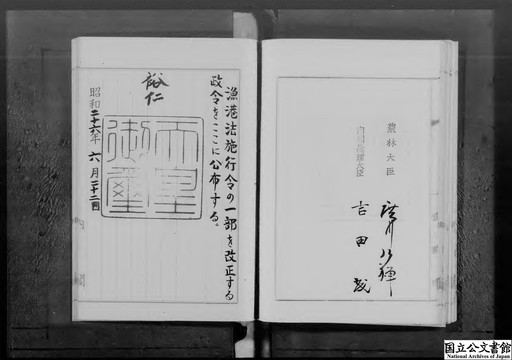 漁港法施行令の一部を改正する
政令をここに公布する。
裕仁
天皇
御璽
昭和二十六年六月二十二日
農林大臣
廣川弘禪
内閣総理大臣
吉田茂
国立公文書館
National Archives of Japan